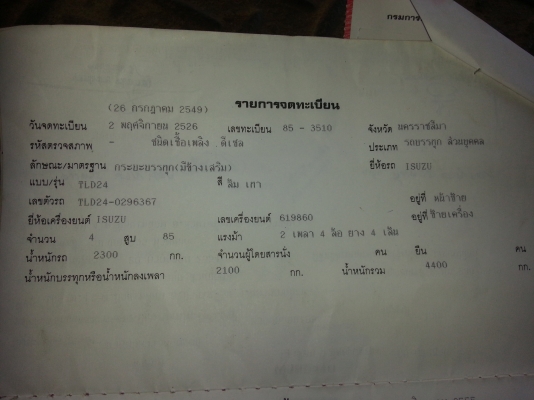 กรมการ
รายการจดทะเบียน
(26 กรกฎาคม 2549)
วันจดทะเบียน 2 พฤศจิกายน 2526 เลขทะเบียน 85 - 3510 จังหวัด นครราชสีมา
รหัสตรวจสภาพ - ชนิดเชื้อเพลิง ดีเซล ประเภท รถบรรทุก ส่วนบุคคล
ลักษณะ/มาตรฐาน กระบะบรรทุก(มีข้างเสริม) ยี่ห้อรถ ISUZU
แบบ/รุ่น TLD24 สี ส้ม เทา
เลขตัวรถ TLD24-0296367 อยู่ที่ หน้าซ้าย
ยี่ห้อเครื่องยนต์ ISUZU เลขเครื่องยนต์ 619860 อยู่ที่ ซ้ายเครื่อง
จำนวน 4 สูบ 85 แรงม้า 2 เพลา 4 ล้อ ยาง 4 เส้น
น้ำหนักรถ 2300 กก. จำนวนผู้โดยสารนั่ง คน ยืน คน
น้ำหนักบรรทุกหรือน้ำหนักลงเพลา 2100 กก. น้ำหนักรวม 4400 กก.